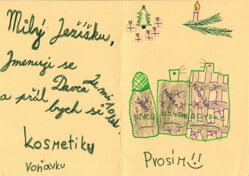 Milý Ježíšku,
Jmenuji se
a přál
bych si
Kosmetiku
Voňavku
Prosím!!